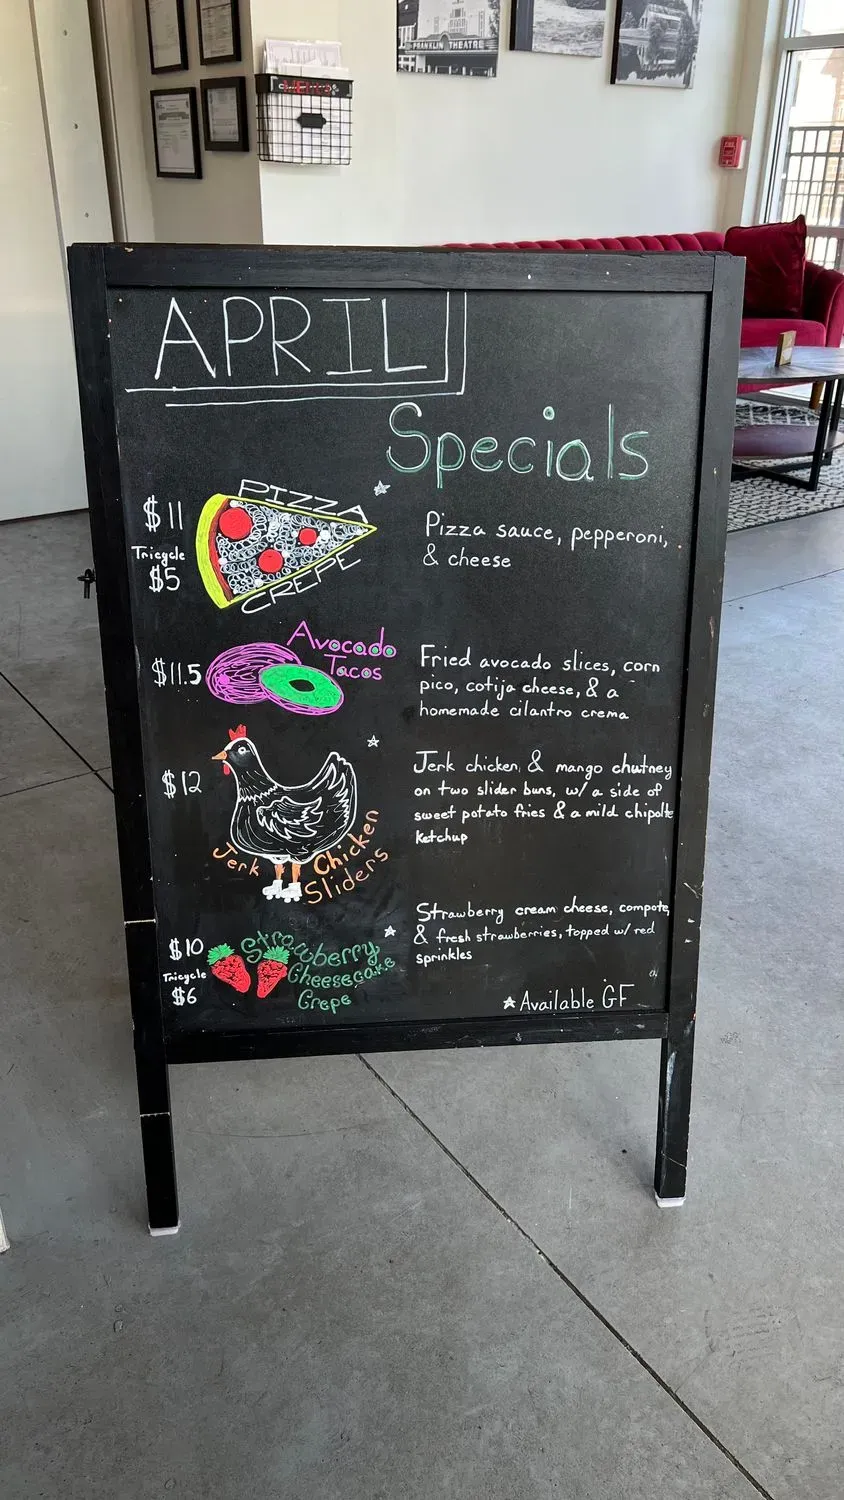 FRANKLIN THEATRE
MENUS
APRIL
Specials
$11
Tricycle
$5
PIZZA
CREPE
Pizza sauce, pepperoni,
& cheese
$11.5
Avocado
Tacos
Fried avocado slices, corn
pico, cotija cheese, & a
homemade cilantro crema
$12
Jerk Chicken
Sliders
Jerk chicken & mango chutney
on two slider buns, w/ a side of
sweet potato fries & a mild chipotle
ketchup
$10
Tricycle
$6
Strawberry
Cheesecake
Crepe
Strawberry cream cheese, compote,
& fresh strawberries, topped w/ red
sprinkles
☆ Available GF